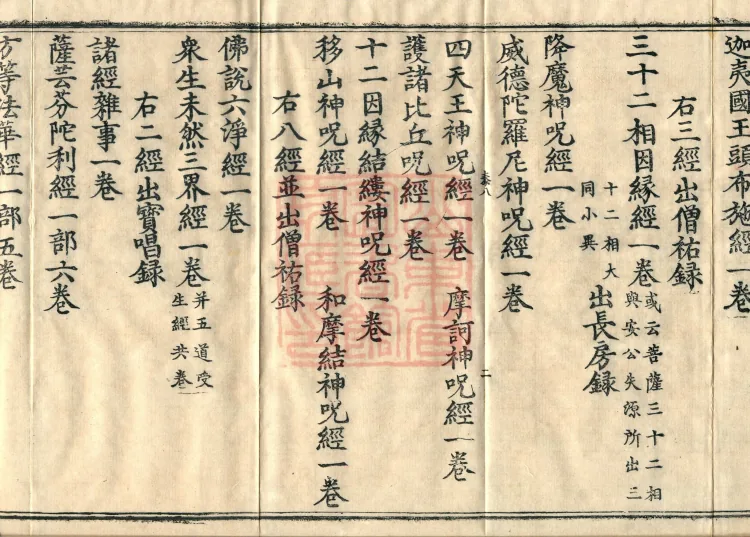 迦夷國王頭布施經一卷
右三經出僧祐録
三十二相因縁經一卷 或云菩薩三十二相與安公失源所出三
十二相大同小異 出長房録
降魔神呪經一卷
威德陀羅尼神呪經一卷
泰八 二
四天王神呪經一卷 摩訶神呪經一卷
護諸比丘呪經一卷
十二因縁結縷神呪經一卷
移山神呪經一卷 和摩結神呪經一卷
右八經並出僧祐録
佛説六淨經一卷
衆生未然三界經一卷 并五道受生經共卷
右二經出寶唱録
諸經雜事一卷
薩芸芬陀利經一部六卷
方等法華經一部五卷